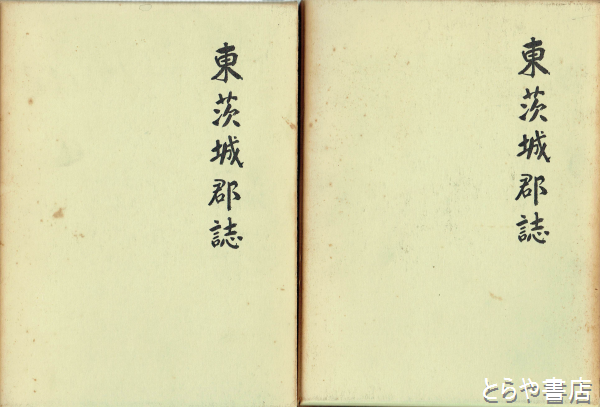 東茨城郡誌
東茨城郡誌
とらや書店